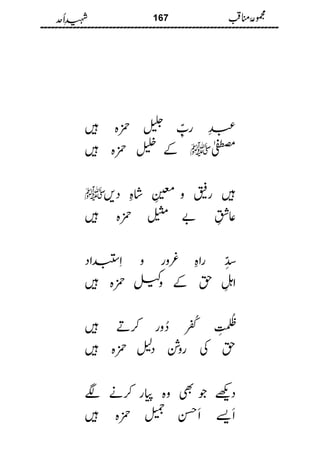 مجموعۂ مناقب 167 شہیدِ اُحد
عبدِ ربِّ جلیل حمزہ ہیں
مصطفیٰ ﷺ کے خلیل حمزہ ہیں
ہیں رفیق و معینِ شاہِ دیں ﷺ
عاشقِ بے مثیل حمزہ ہیں
سدِّ راہِ غرور و اِستبداد
اہلِ حق کے وکیل حمزہ ہیں
ظُلمتِ کُفر دُور کرتے ہیں
حق کی روشن دلیل حمزہ ہیں
دیکھے جو بھی وہ پیار کرنے لگے
اَیسے اَحسن اَجمیل حمزہ ہیں